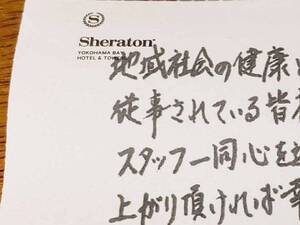 Sheraton
YOKOHAMA BAY
HOTEL & TOWERS
地域社会の健康
従事されている皆
スタッフ一同心を
上がり頂ければ幸